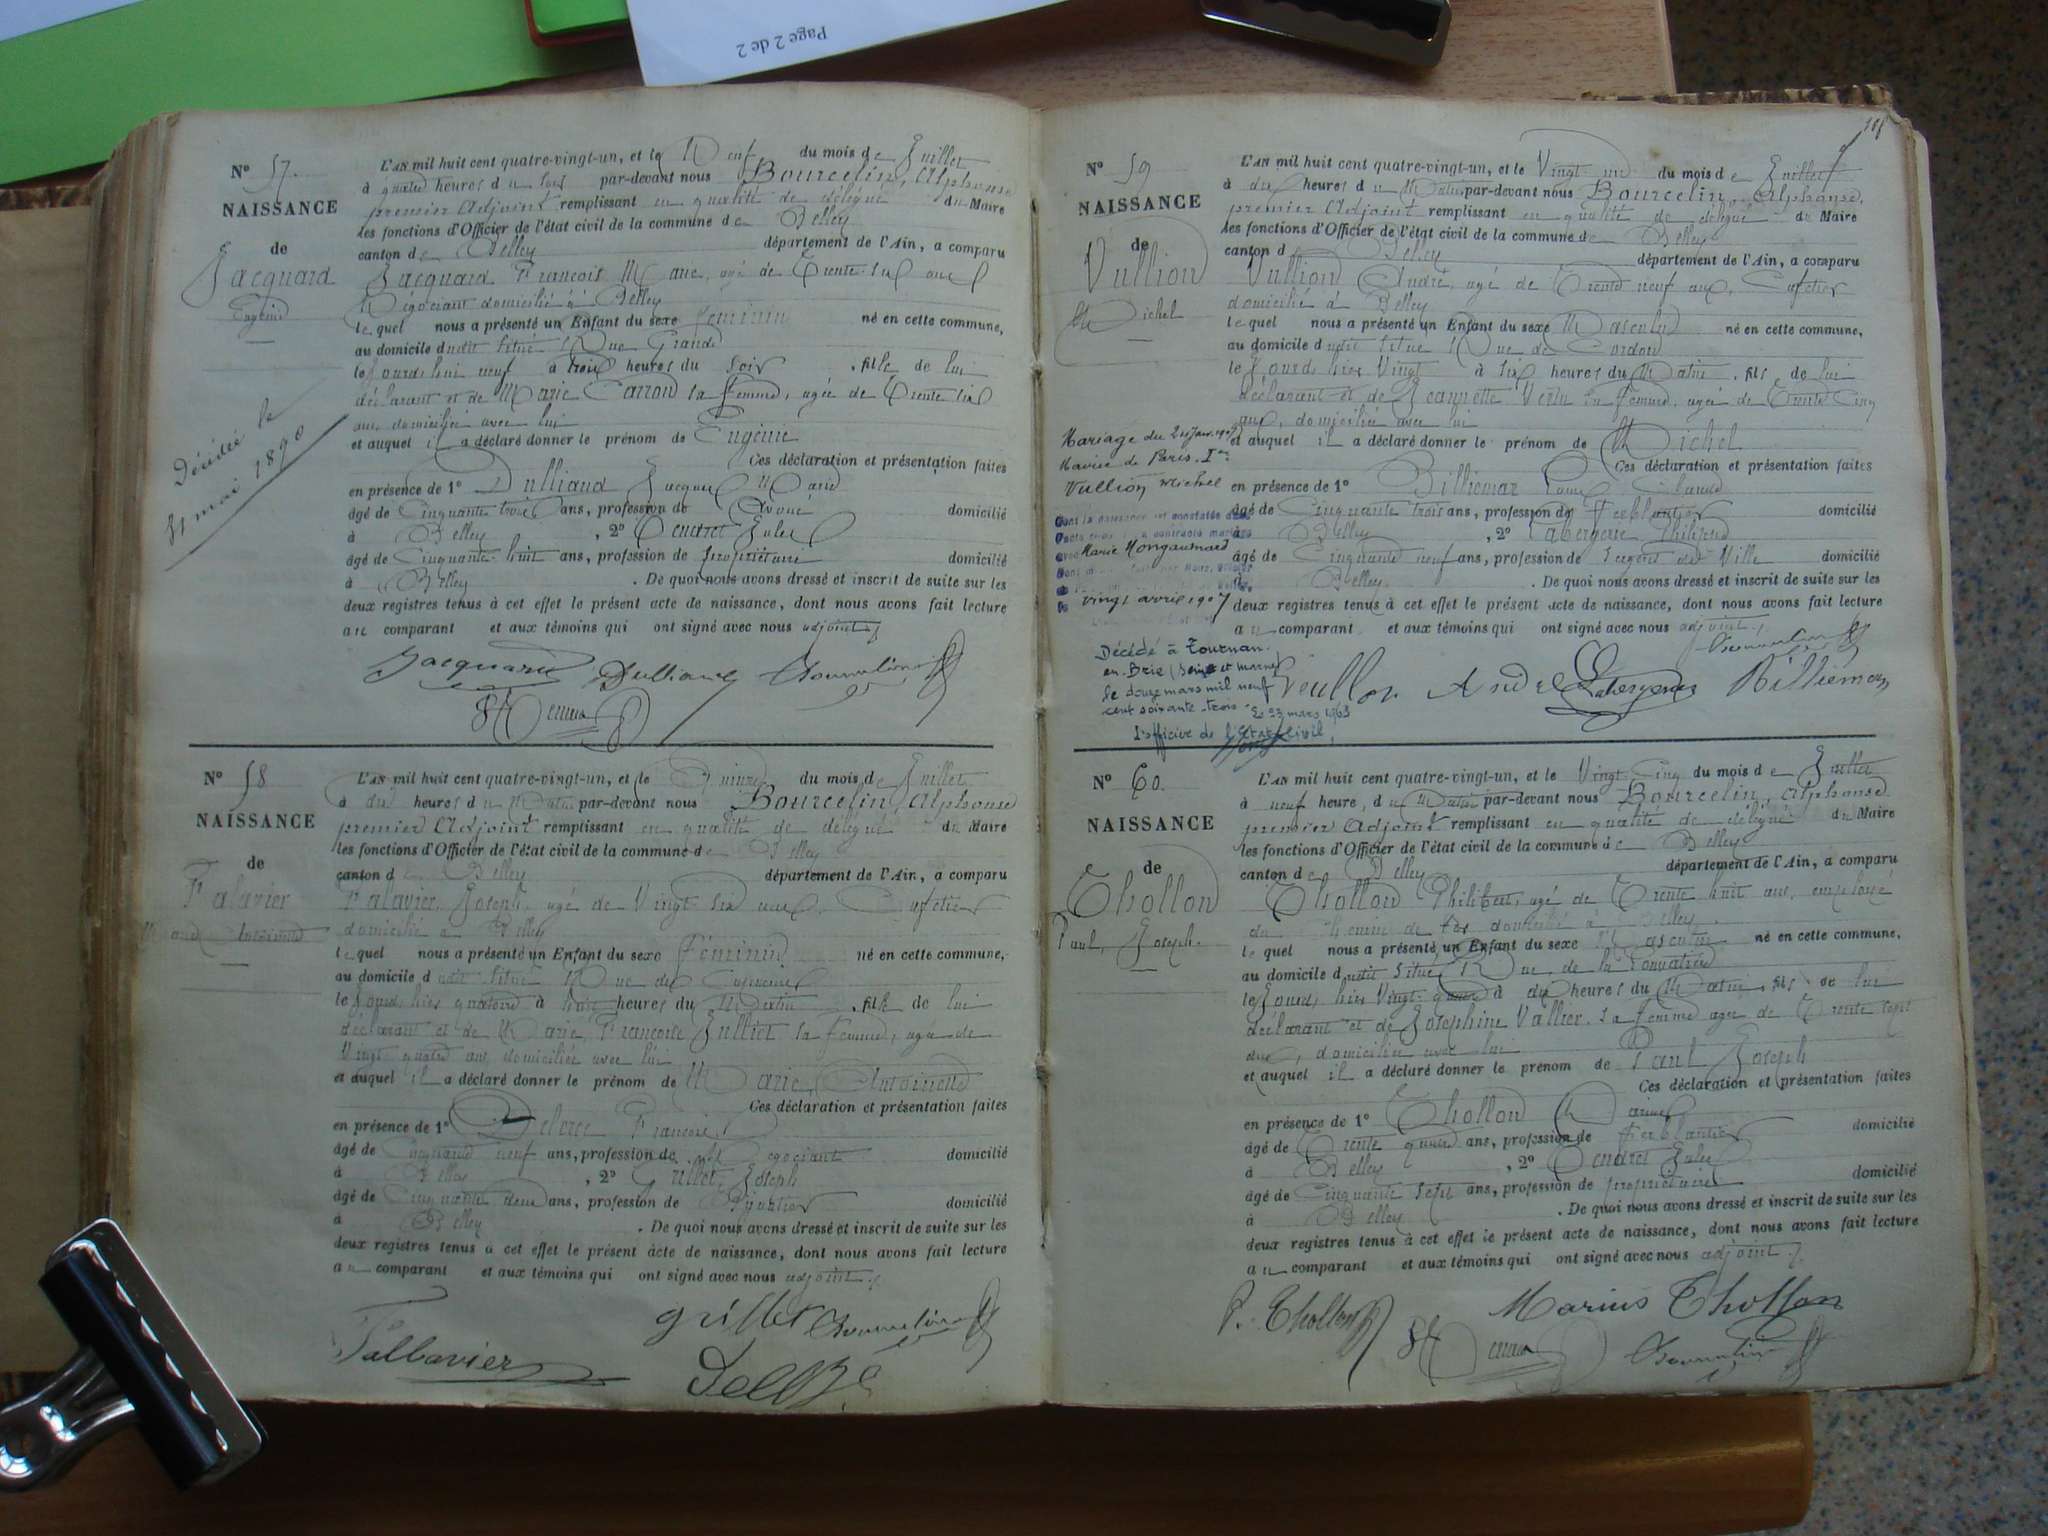 Page 2 de 2
N° 57.
NAISSANCE
de
Jacquard
Eugénie
Décédée le
31 mai 1890
L'AN mil huit cent quatre-vingt-un, et le Neuf du mois de Juillet
à quatre heures du soir par-devant nous Bourcelin, Alphonse
premier Adjoint remplissant en qualité de délégué du Maire
les fonctions d'Officier de l'état civil de la commune de Belley
canton de Belley département de l'Ain, a comparu
Jacquard François Marie, agé de Trente-six ans
Négociant domicilié à Belley
lequel nous a présenté un Enfant du sexe féminin né en cette commune,
au domicile dudit situé Rue Grande
le jourd'hui neuf à trois heures du soir, fille de lui
déclarant et de Marie Carrond sa femme, agée de Trente six
ans domiciliée avec lui
et auquel il a déclaré donner le prénom de Eugénie
Ces déclaration et présentation faites
en présence de 1° Dulliand Jacques Marie
âgé de Cinquante trois ans, profession de Avoué domicilié
à Belley, 2° Jules
âgé de Cinquante-huit ans, profession de propriétaire domicilié
à Belley. De quoi nous avons dressé et inscrit de suite sur les
deux registres tenus à cet effet le présent acte de naissance, dont nous avons fait lecture
au comparant et aux témoins qui ont signé avec nous adjoint
Jacquard Dulliand
N° 58
NAISSANCE
de
Falavier
Marie Antoinette
L'AN mil huit cent quatre-vingt-un, et le Quinze du mois de Juillet
à dix heures du Matin par-devant nous Bourcelin, Alphonse
premier Adjoint remplissant en qualité de délégué du Maire
les fonctions d'Officier de l'état civil de la commune de Belley
canton de Belley département de l'Ain, a comparu
Falavier, Joseph, agé de Vingt six ans, Cafetier
domicilié à Belley
lequel nous a présenté un Enfant du sexe féminin né en cette commune,
au domicile dudit situé Rue des
le jourd'hier quatorze à trois heures du Matin, fille de lui
déclarant et de Marie Françoise Julliet sa femme, agée de
Vingt quatre ans domiciliée avec lui
et auquel il a déclaré donner le prénom de Marie, Antoinette
Ces déclaration et présentation faites
en présence de 1° François
âgé de Cinquante neuf ans, profession de Négociant domicilié
à Belley, 2° Grillet, Joseph
âgé de Cinquante deux ans, profession de domicilié
à Belley. De quoi nous avons dressé et inscrit de suite sur les
deux registres tenus à cet effet le présent acte de naissance, dont nous avons fait lecture
au comparant et aux témoins qui ont signé avec nous adjoint
Grillet
Tallavier
N° 59
NAISSANCE
de
Vullion
Michel
Mariage du 24 Janv. 1907
Mairie de Paris. 1er
Vullion Michel
Dont la naissance est constatée dans
Marie Mongaumard
vingt avril 1907
Décédé à Tournan
en Brie (Seine et marne)
le douze mars mil neuf
cent soixante-trois. Le 23 mars 1963
L'officier de l'Etat civil,
L'AN mil huit cent quatre-vingt-un, et le Vingt-un du mois de Juillet
à dix heures du Matin par-devant nous Bourcelin, Alphonse,
premier Adjoint remplissant en qualité de délégué du Maire
les fonctions d'Officier de l'état civil de la commune de Belley
canton d Belley département de l'Ain, a comparu
Vullion André, agé de Trente neuf ans, Cafetier
domicilié à Belley
lequel nous a présenté un Enfant du sexe Masculin né en cette commune,
au domicile dudit situé Rue de Cordon
le jourd'hier Vingt à six heures du Matin, fils de lui
déclarant et de Jeannette Vertu sa femme, agée de Trente Cinq
ans, domiciliée avec lui
et auquel il a déclaré donner le prénom de Michel
Ces déclaration et présentation faites
en présence de 1° Billiémaz Louis Claude
âgé de Cinquante trois ans, profession de Ferblantier domicilié
à Belley, 2° Labergerie Philippe
âgé de Cinquante neuf ans, profession de Sergent de Ville domicilié
à Belley. De quoi nous avons dressé et inscrit de suite sur les
deux registres tenus à cet effet le présent acte de naissance, dont nous avons fait lecture
au comparant et aux témoins qui ont signé avec nous adjoint
Vullion André Labergerie Billiémaz
N° 60.
NAISSANCE
de
Thollon
Paul, Joseph.
L'AN mil huit cent quatre-vingt-un, et le Vingt-Cinq du mois de Juillet
à neuf heure, du Matin par-devant nous Bourcelin, Alphonse
premier Adjoint remplissant en qualité de délégué du Maire
les fonctions d'Officier de l'état civil de la commune de Belley
canton de Belley département de l'Ain, a comparu
Thollon Philibert, agé de Trente huit ans, employé
du Chemin de fer domicilié à Belley
lequel nous a présenté un Enfant du sexe Masculin né en cette commune,
au domicile dudit situé Rue de la
le Jourd'hier Vingt-quatre à dix heures du Matin, fils de lui
déclarant et de Joséphine Vallier. sa femme agée de Trente sept
ans, domiciliée avec lui
et auquel il a déclaré donner le prénom de Paul Joseph
Ces déclaration et présentation faites
en présence de 1° Thollon Marius
âgé de Trente quatre ans, profession de Ferblantier domicilié
à Belley, 2° Jules
âgé de Cinquante sept ans, profession de propriétaire domicilié
à Belley. De quoi nous avons dressé et inscrit de suite sur les
deux registres tenus à cet effet le présent acte de naissance, dont nous avons fait lecture
au comparant et aux témoins qui ont signé avec nous adjoint
P. Thollon Marius Thollon